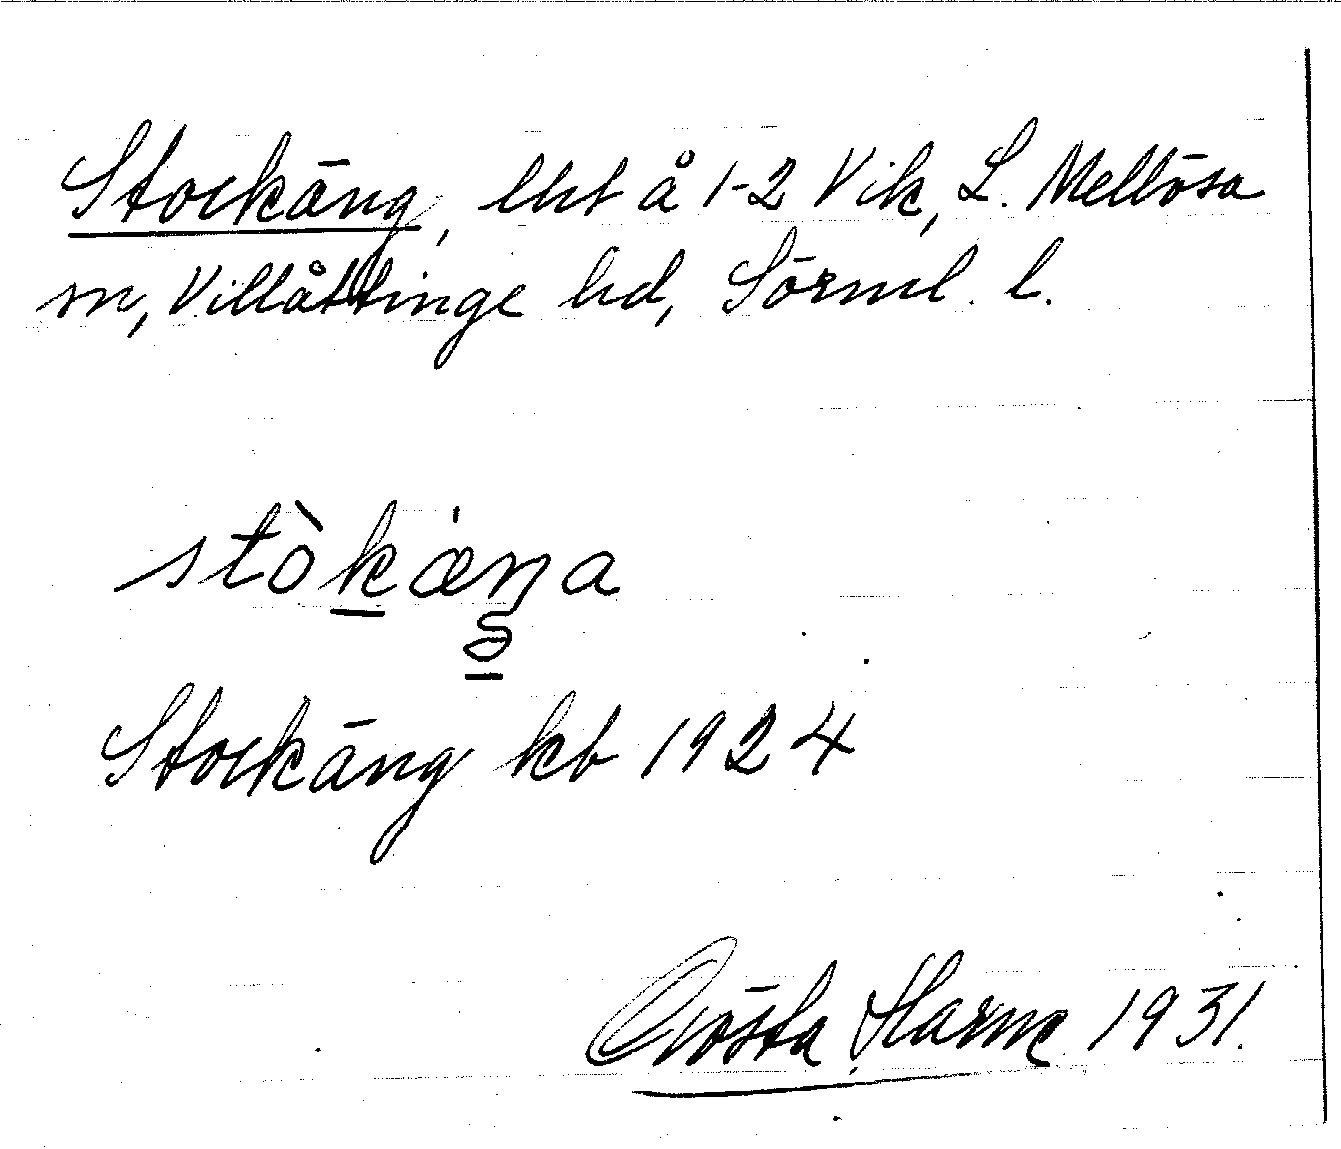 Stockäng, lht å 1-2 Vik, L. Mellösa
sn, Villåttinge hd, Sörml. l.
stòkæ̍ŋa
ə
Stockäng kb 1924
Gösta Harne 1931.